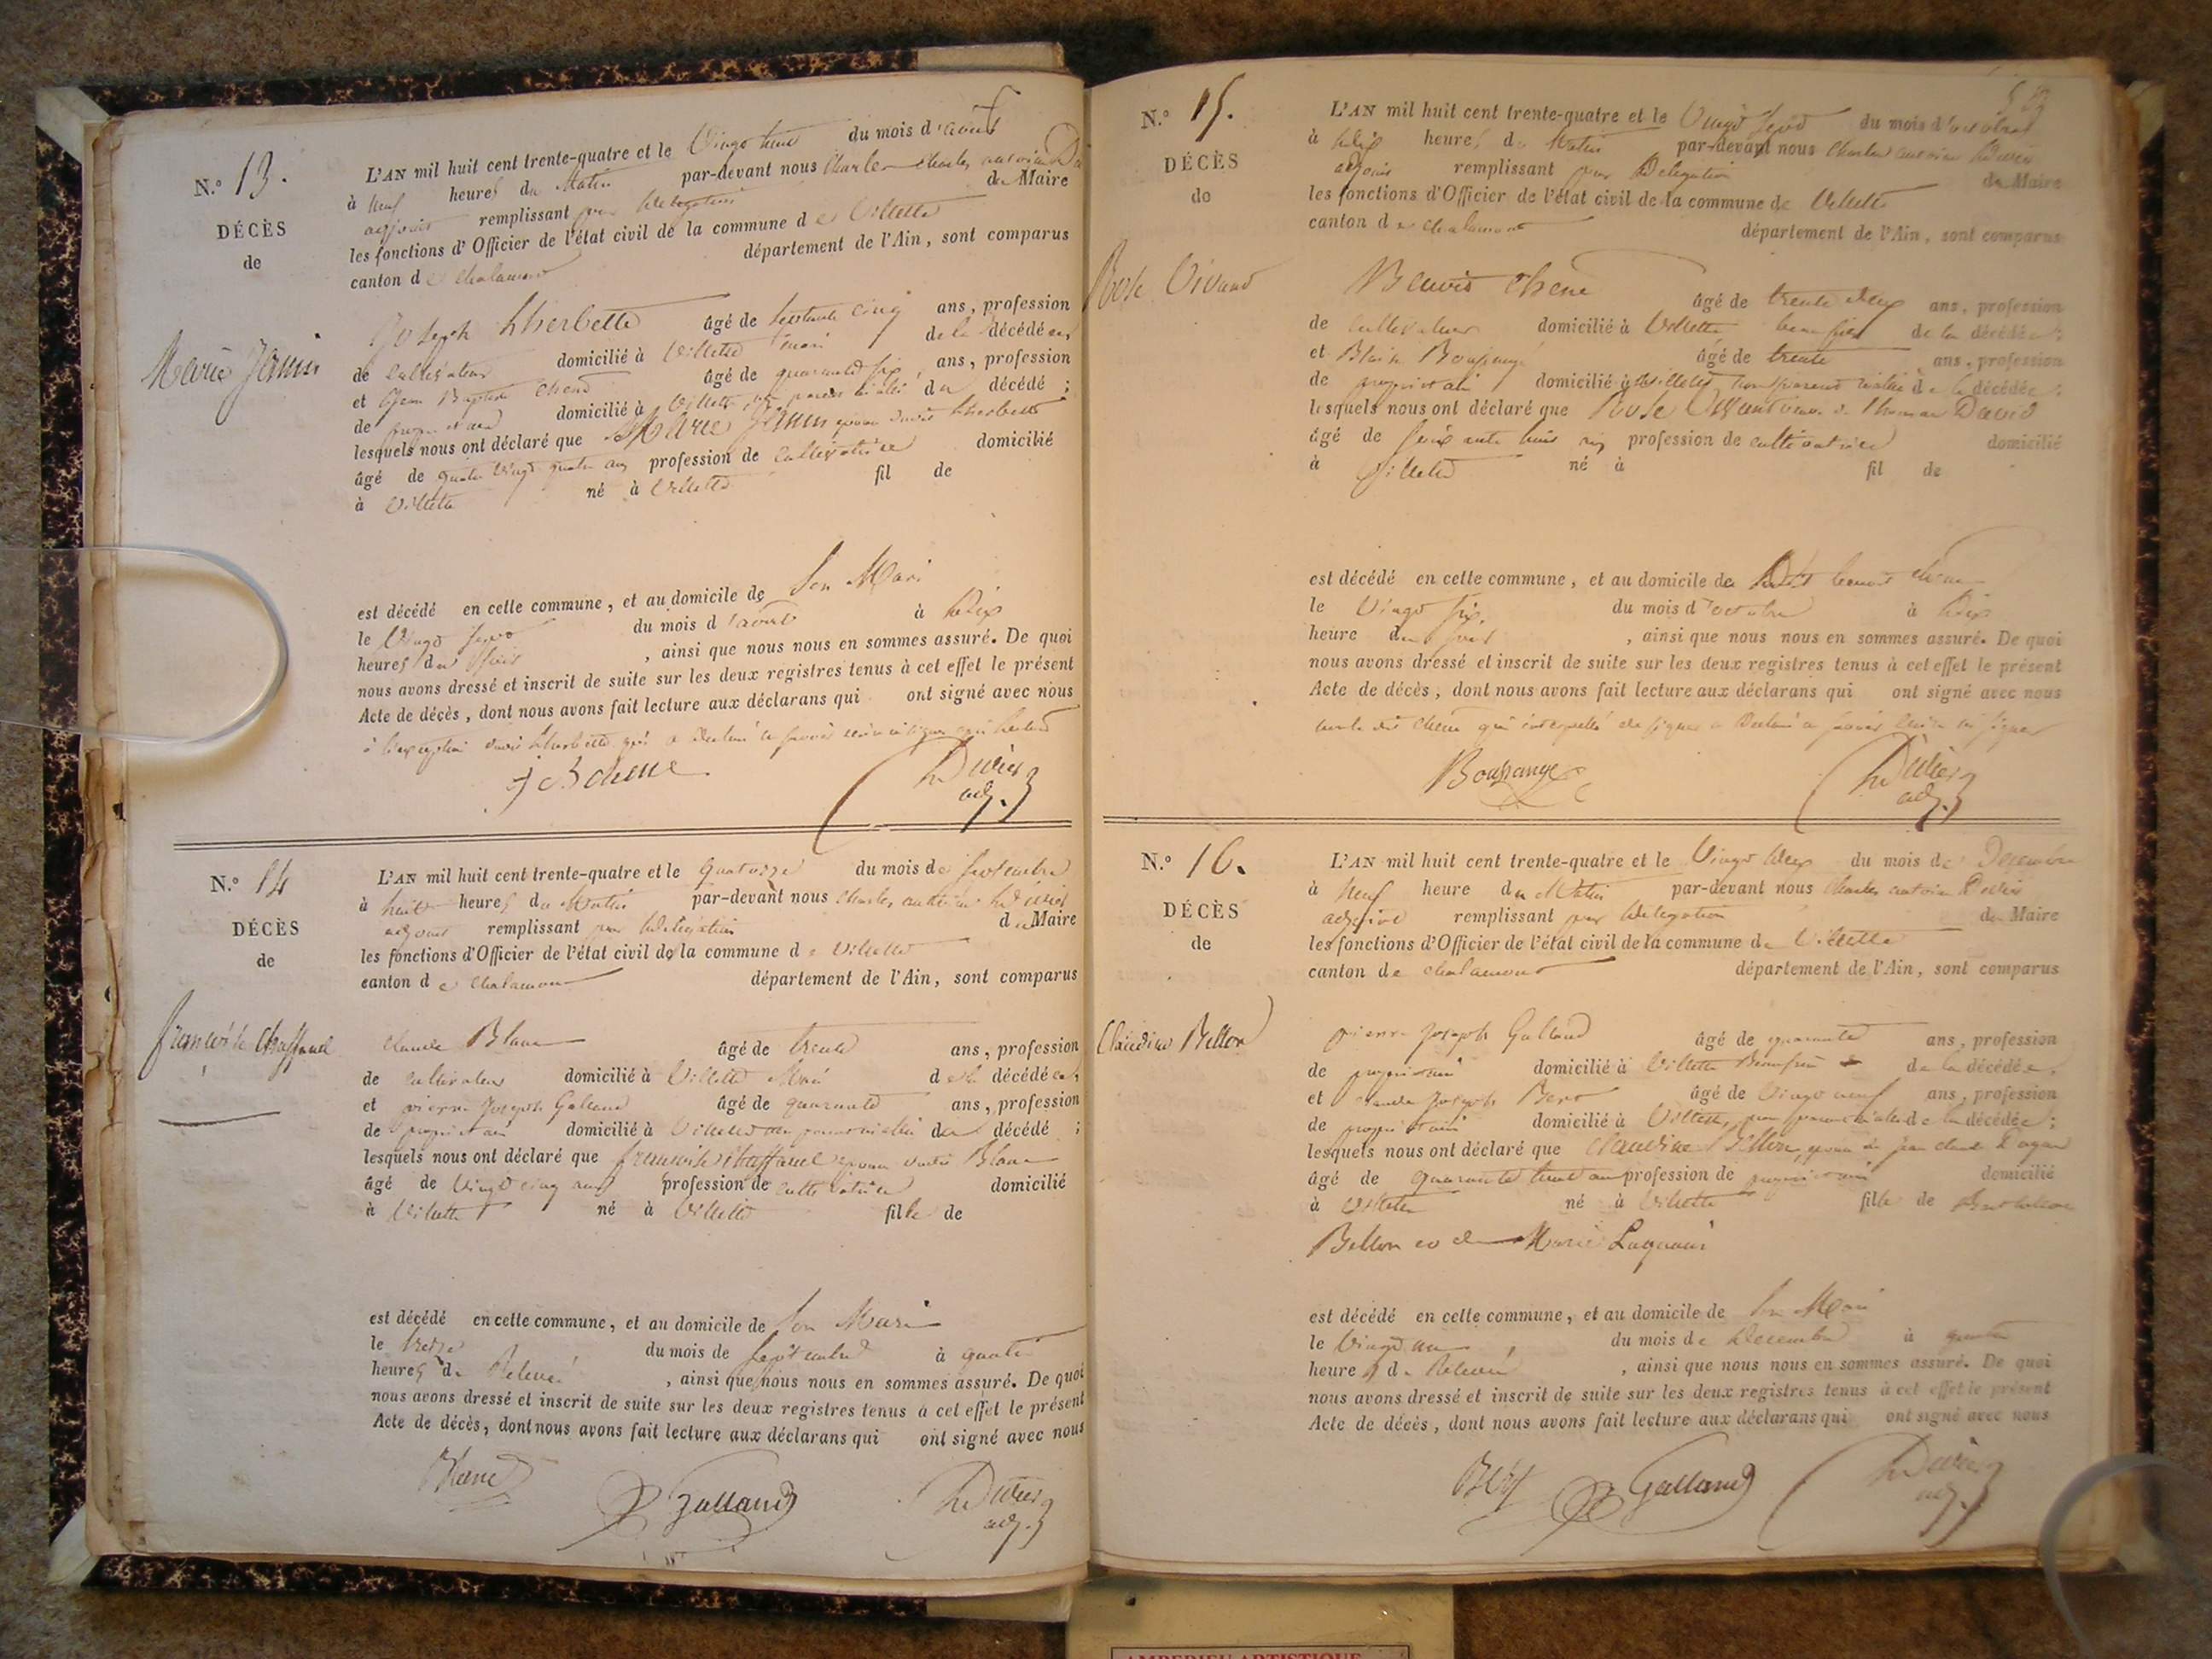 N.º 13.
DÉCÈS
de
Marie Janin
L'AN mil huit cent trente-quatre et le Vingt huit du mois d'aout
à neuf heures du Matin par-devant nous Charles antoine
adjoint remplissant par délégation du Maire
les fonctions d'Officier de l'état civil de la commune de Villette
canton de Chalamont département de l'Ain, sont comparus
Joseph Lherbette âgé de soixante cinq ans, profession
de cultivateur domicilié à Villette mari de la décédée,
et Jean Baptiste Chene âgé de quarante six, ans, profession
de proprietaire domicilié à Villette, non parent ni allié du décédé ;
lesquels nous ont déclaré que Marie Janin epouse dudit Lherbette
âgé de quatre vingt quatre ans profession de cultivatrice domicilié
à Villette né à Villette fil de
est décédé en cette commune, et au domicile de son Mari
le Vingt sept du mois d'aout à dix
heures du soir, ainsi que nous nous en sommes assuré. De quoi
nous avons dressé et inscrit de suite sur les deux registres tenus à cet effet le présent
Acte de décès, dont nous avons fait lecture aux déclarans qui ont signé avec nous
à l'exception dudit Lherbette qui a declaré ne savoir
j B chene Divier adj.
N.º 14
DÉCÈS
de
françoise Chaffanel
L'AN mil huit cent trente-quatre et le quatorze du mois de septembre
à huit heures du Matin par-devant nous Charles antoine Divier
adjoint remplissant par délégation du Maire
les fonctions d'Officier de l'état civil de la commune de Villette
canton de Chalamont département de l'Ain, sont comparus
claude Blanc âgé de trente ans, profession
de cultivateur domicilié à Villette Mari de la décédée,
et pierre Joseph Galland âgé de quarante ans, profession
de proprietaire domicilié à Villette non parent ni allié du décédé ;
lesquels nous ont déclaré que françoise chaffanel epouse dudit Blanc
âgé de Vingt cinq ans profession de cultivatrice domicilié
à Villette né à Villette fille de
est décédé en cette commune, et au domicile de son Mari
le treize du mois de septembre à quatre
heures de Relevée, ainsi que nous nous en sommes assuré. De quoi
nous avons dressé et inscrit de suite sur les deux registres tenus à cet effet le présent
Acte de décès, dont nous avons fait lecture aux déclarans qui ont signé avec nous
Blanc Galland Divier adj.
N.º 15.
DÉCÈS
de
Rose Vivant
L'AN mil huit cent trente-quatre et le Vingt sept du mois d'octobre
à dix heures du Matin par-devant nous Charles antoine Divier
adjoint remplissant par Délégation du Maire
les fonctions d'Officier de l'état civil de la commune de Villette
canton de Chalamont département de l'Ain, sont comparus
Benoit Chene âgé de trente deux ans, profession
de cultivateur domicilié à Villette beau fils de la décédée ;
et Blaise Boussange âgé de trente ans, profession
de proprietaire domicilié à Villette non parent ni allié de la décédée ;
lesquels nous ont déclaré que Rose Vivant veuve de Thomas David
âgé de soixante huit ans profession de cultivatrice domicilié
à Villette né à fil de
est décédé en cette commune, et au domicile de dit benoit chene
le Vingt six, du mois d'octobre à dix
heure du soir, ainsi que nous nous en sommes assuré. De quoi
nous avons dressé et inscrit de suite sur les deux registres tenus à cet effet le présent
Acte de décès, dont nous avons fait lecture aux déclarans qui ont signé avec nous
dit chene qui interpellé de signer a Declaré ne savoir ni signer
Boussange Divier adj.
N.º 16.
DÉCÈS
de
Claudine Bellon
L'AN mil huit cent trente-quatre et le Vingt deux du mois de Decembre
à neuf heure du Matin par-devant nous Charles antoine Divier
adjoint remplissant par délégation du Maire
les fonctions d'Officier de l'état civil de la commune de Villette
canton de Chalamont département de l'Ain, sont comparus
pierre Joseph Galland âgé de quarante ans, profession
de proprietaire domicilié à Villette Beaufrere de la décédée,
et claude Joseph Bert âgé de Vingt neuf ans, profession
de proprietaire domicilié à Villette, non parent ni allié de la décédée ;
lesquels nous ont déclaré que Claudine Bellon, epouse de jean claude
âgé de quarante trois ans profession de proprietaire domicilié
à Villette né à Villette fille de
Bellon et de Marie
est décédé en cette commune, et au domicile de son Mari
le Vingt un du mois de Decembre à quatre
heure de Relevée, ainsi que nous nous en sommes assuré. De quoi
nous avons dressé et inscrit de suite sur les deux registres tenus à cet effet le présent
Acte de décès, dont nous avons fait lecture aux déclarans qui ont signé avec nous
Bert Galland Divier adj.
AMBERIEU ARTISTIQUE